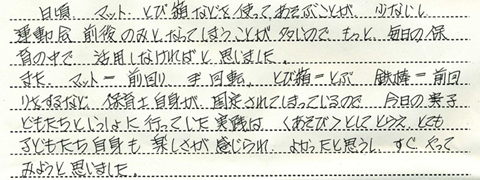 日頃 マット とび箱などを使ってあそぶことが 少なし
運動会 前後のみとなってしまうことが多いので もっと 毎日の保
育の中で 活用しなければと思いました。
また マット＝前回り 手 回転、とび箱＝とぶ 鉄棒＝前回
りをするなど 保育士自身が 固定されてしまっているので 今日の実子
どもたちといっしょに行っていた実践は 〈あそび〉としてとらえ、とても
子どもたち自身も 楽しさが感じられ よかったと思うし すぐ やって
みようと思いました。